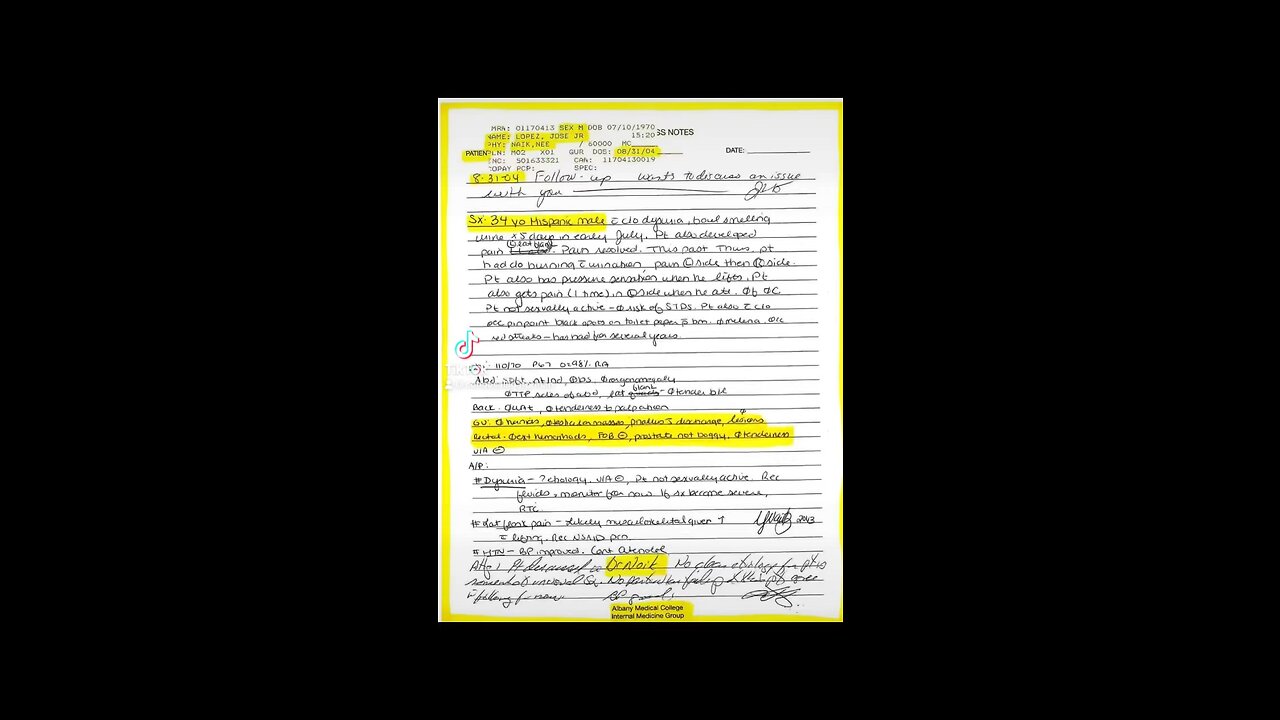 MRN: 01170413 SEX M DOB 07/10/1970
NAME: LOPEZ, JOSE JR 15:20 SS NOTES
PHY: NAIK,NEE / 60000 MC
PATIEN PLN: M02 X01 GUR DOS: 08/31/04 DATE:
INC: 501633321 CAA: 11704130019
COPAY PCP: SPEC:
8-31-04 Follow-up wants to discuss an issue
with you
Sx: 34 yo Hispanic male c c/o dysuria, foul smelling
urine x 5 days in early July. Pt also developed
pain (L) flank. Pain resolved. This past Thurs, pt
had do burning c urination, pain (L) side then (R) side.
Pt also has pressure sensation when he lifts. Pt
also gets pain (1 time) in (L) side when he ate. ∅f ∅C
Pt not sexually active - ∅ risk of STDs. Pt also c c/o
occ pinpoint black spots on toilet paper p bm. ∅ melena. occ
red streaks - has had for several years.
110/70 P67 O298% RA
Abd: soft, nt/nd, ⊕BS, ∅organomegaly
∅TTP sides of abd, lat flank - ∅tender b/l
Back: ∅CVAT, ∅tenderness to palpation
GU: ∅ hernias, ∅testicular masses, phallus s discharge, lesions
Rectal: ∅ext hemorrhoids, FOB ⊖, prostate not boggy, ∅tenderness
U/A ⊖
A/P:
# Dysuria - ? etiology. U/A ⊖, Pt not sexually active. Rec
fluids, monitor for now. If sx become severe,
RTC
# Lat flank pain - likely musculoskeletal given ↑ 2043
c lifting. Rec NSAID prn.
# HTN - BP improved. Cont Atenolol
Attg: Pt discussed c Dr Naik. No clear etiology for pt's
somewhat unusual Sx. No particular findings
c following for now. BP good
Albany Medical College
Internal Medicine Group
TikTok